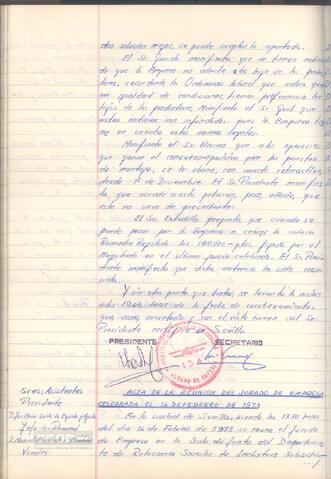 otra solución mejor, se puede aceptar la aportada.
El Sr. manifiesta que se tienen noticias
de que la Empresa no admite a los hijos de los produc-
tores, recordando la Ordenanza laboral que
en igualdad de condiciones tienen preferencia los
hijos de los productores. Manifiesta el Sr. Guil que
estas noticias son infundadas, pues la Empresa
en cuenta esta norma legal.
Manifiesta el Sr. que a los operarios
que ganen el concurso-oposición para los puestos
de montaje, se le abone, con carácter retroactivo,
desde 1º de Diciembre. El Sr. Presidente manifies-
ta que accede a esta petición, pero, añade, que
esto no sirva de precedente.
El Sr. Estudillo pregunta que cuando se
puede pasar por la Empresa a cobrar la señora
las 180.000 ptas. fijada por el
Magistrado en el último juicio celebrado. El Sr. Presi-
dente manifiesta que dicha sentencia ha sido recu-
rrida.
Y sin otro punto que tratar, se levanta la sesión
a las horas de la fecha de encabezamiento,
que como secretario y con el visto bueno del Sr.
Presidente certifico en Sevilla.
PRESIDENTE SECRETARIO
I S A
JURADO DE EMPRESA
ACTA DE LA REUNIÓN DEL JURADO DE EMPRESA
CELEBRADA EL 14 DE FEBRERO DE 1973
Sres. Asistentes
Presidente
Jefe de Personal
Vocales
En la ciudad de Sevilla, siendo las 17.30 horas
del día 14 de Febrero de 1973 se reune el Jurado
de Empresa en la Sala de Junta del Departamen-
to de Relaciones Sociales de Industria Subsidia-